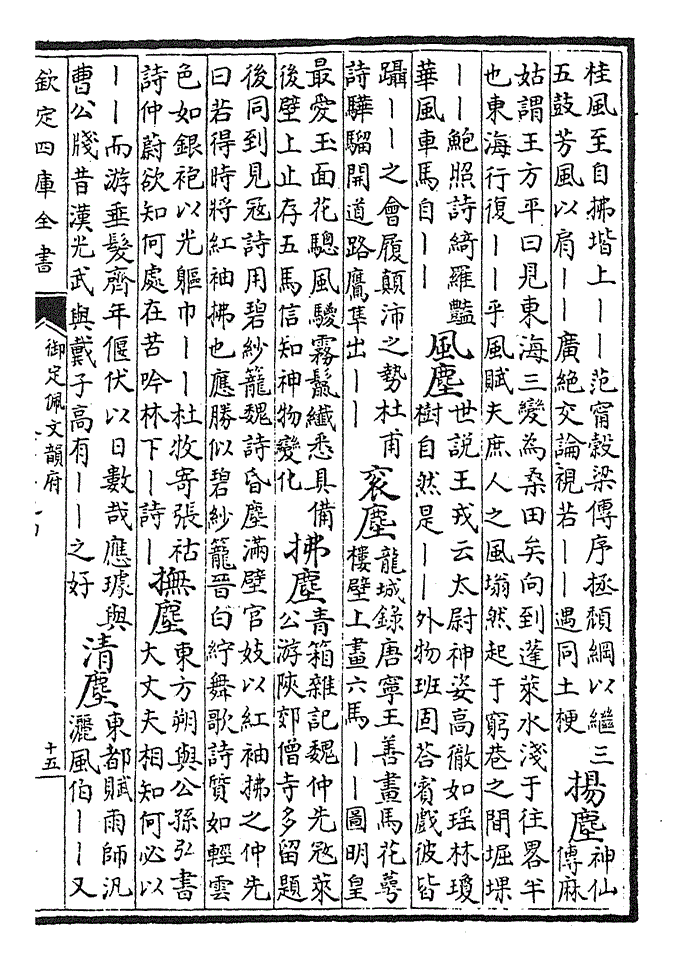 桂風至自拂堦上丨丨范甯穀梁傳序拯頽綱以繼三
五鼓芳風以扇丨丨廣絶交論視若丨丨遇同土梗
揚塵
神仙
傳麻
姑謂王方平曰見東海三變為桑田矣向到蓬萊水淺于往畧半
也東海行復丨丨乎風賦夫庶人之風塕然起于窮巷之間堀堁
丨丨鮑照詩綺羅豔
華風車馬自丨丨
風塵
世説王戎云太尉神姿高徹如瑶林瓊
樹自然是丨丨外物班固荅賓戲彼皆
躡丨丨之會履顛沛之勢杜甫
詩驊騮開道路鷹隼出丨丨
衮塵
龍城錄唐寧王善畫馬花萼
樓壁上畫六馬丨丨圖明皇
最愛玉面花驄風鬉霧鬛纎悉具備
後壁上止存五馬信知神物變化
拂塵
青箱雜記魏仲先冦萊
公游陜郊僧寺多留題
後同到見冦詩用碧紗籠魏詩昏塵滿壁官妓以紅袖拂之仲先
曰若得時將紅袖拂也應勝似碧紗籠晉白紵舞歌詩質如輕雲
色如銀袍以光軀巾丨丨杜牧寄張祜
詩仲蔚欲知何處在苦吟林下丨詩丨
撫塵
東方朔與公孫弘書
大丈夫相知何必以
丨丨而游垂髮齊年偃伏以日數哉應璩與
曹公牋昔漢光武與戴子高有丨丨之好
清塵
東都賦雨師汎
灑風伯丨丨又
欽定四庫全書
御定佩文韻府
十五